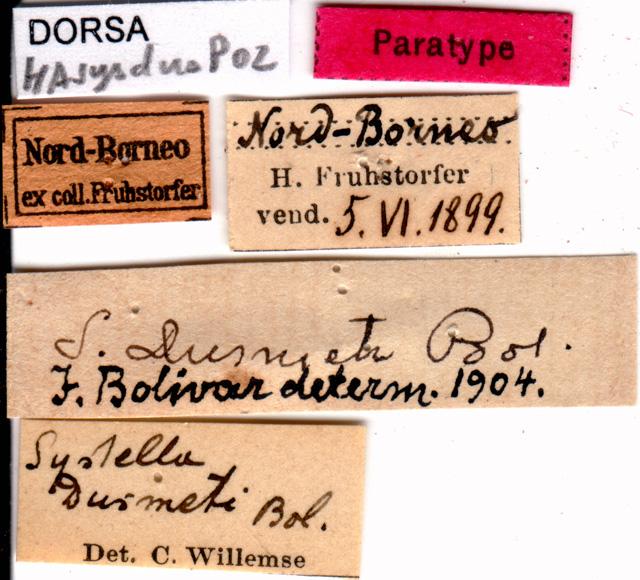 DORSA
Paratype
Nord-Borneo
ex coll. Fruhstorfer
Nord-Borneo
H. Fruhstorfer
vend. 5. VI. 1899.
S. Dusmeti Bol.
I. Bolivar determ. 1904.
Systella
Dusmeti Bol.
Det. C. Willemse